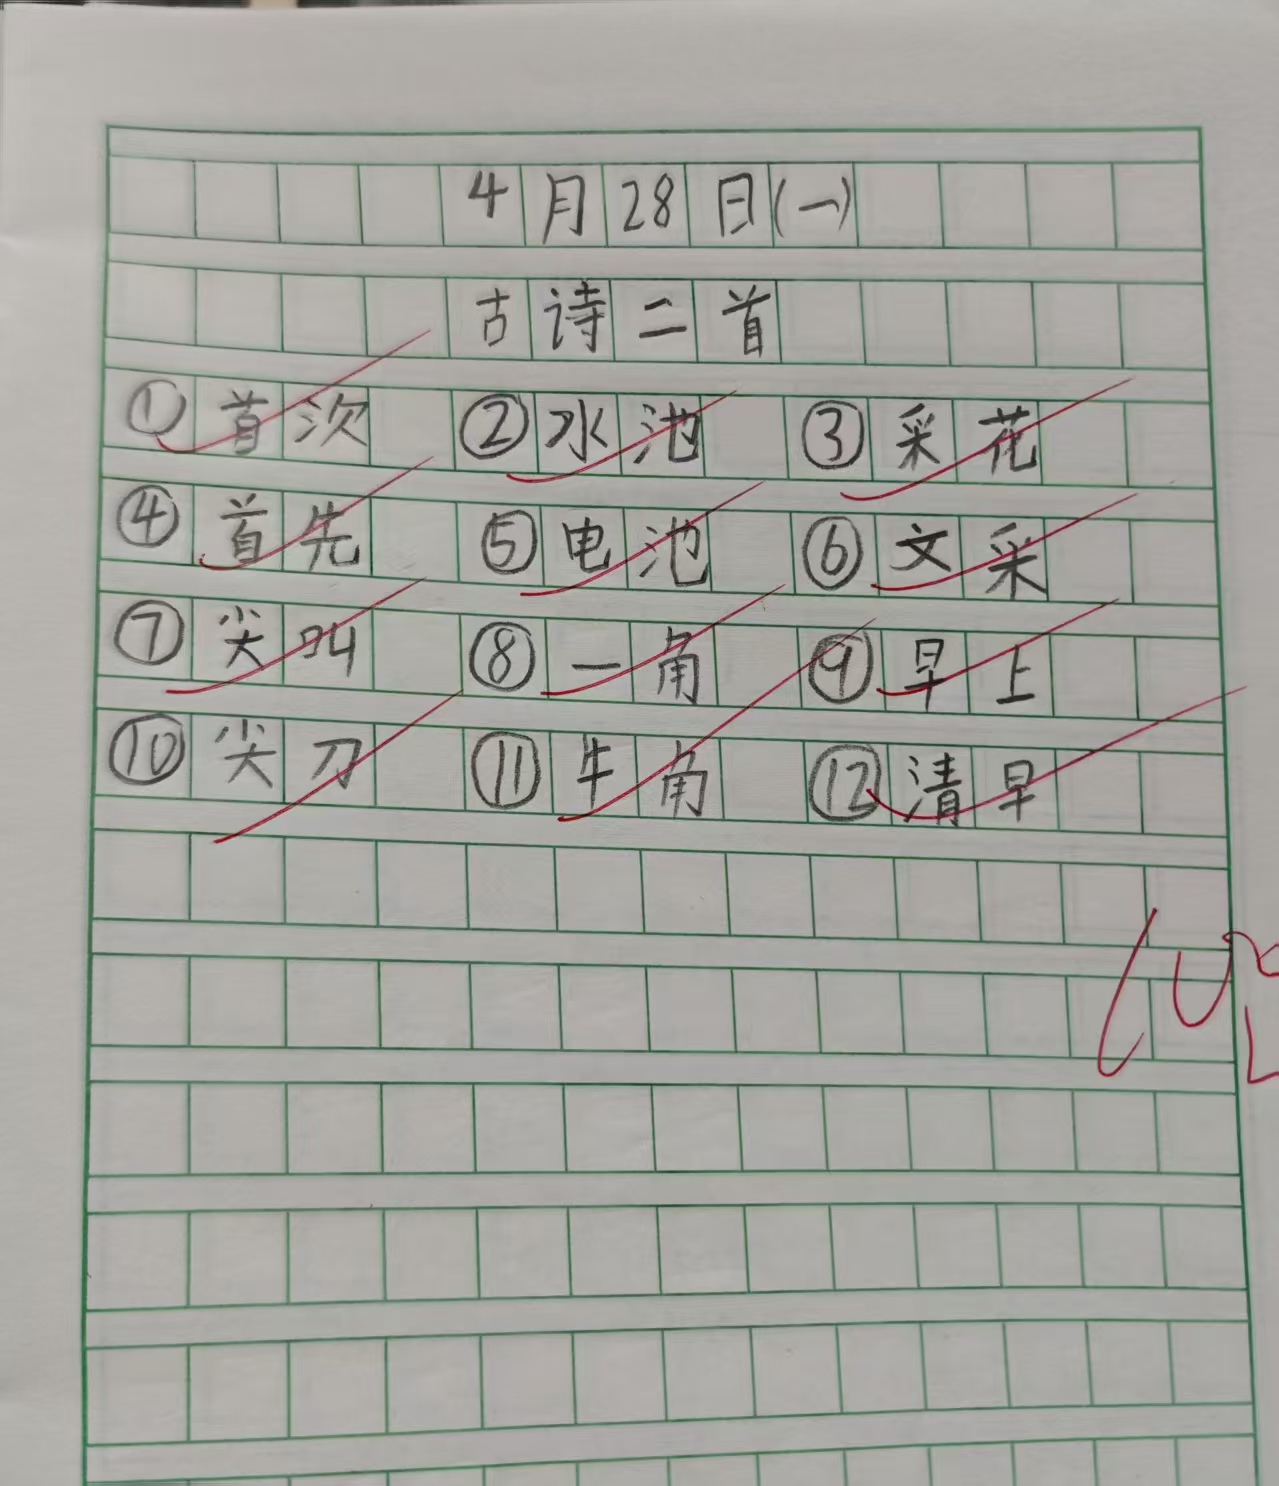 4月28日(一)
古诗二首
①首次 ②水池 ③采花
④首先 ⑤电池 ⑥文采
⑦尖叫 ⑧一角 ⑨早上
⑩尖刀 ⑪牛角 ⑫清早
100